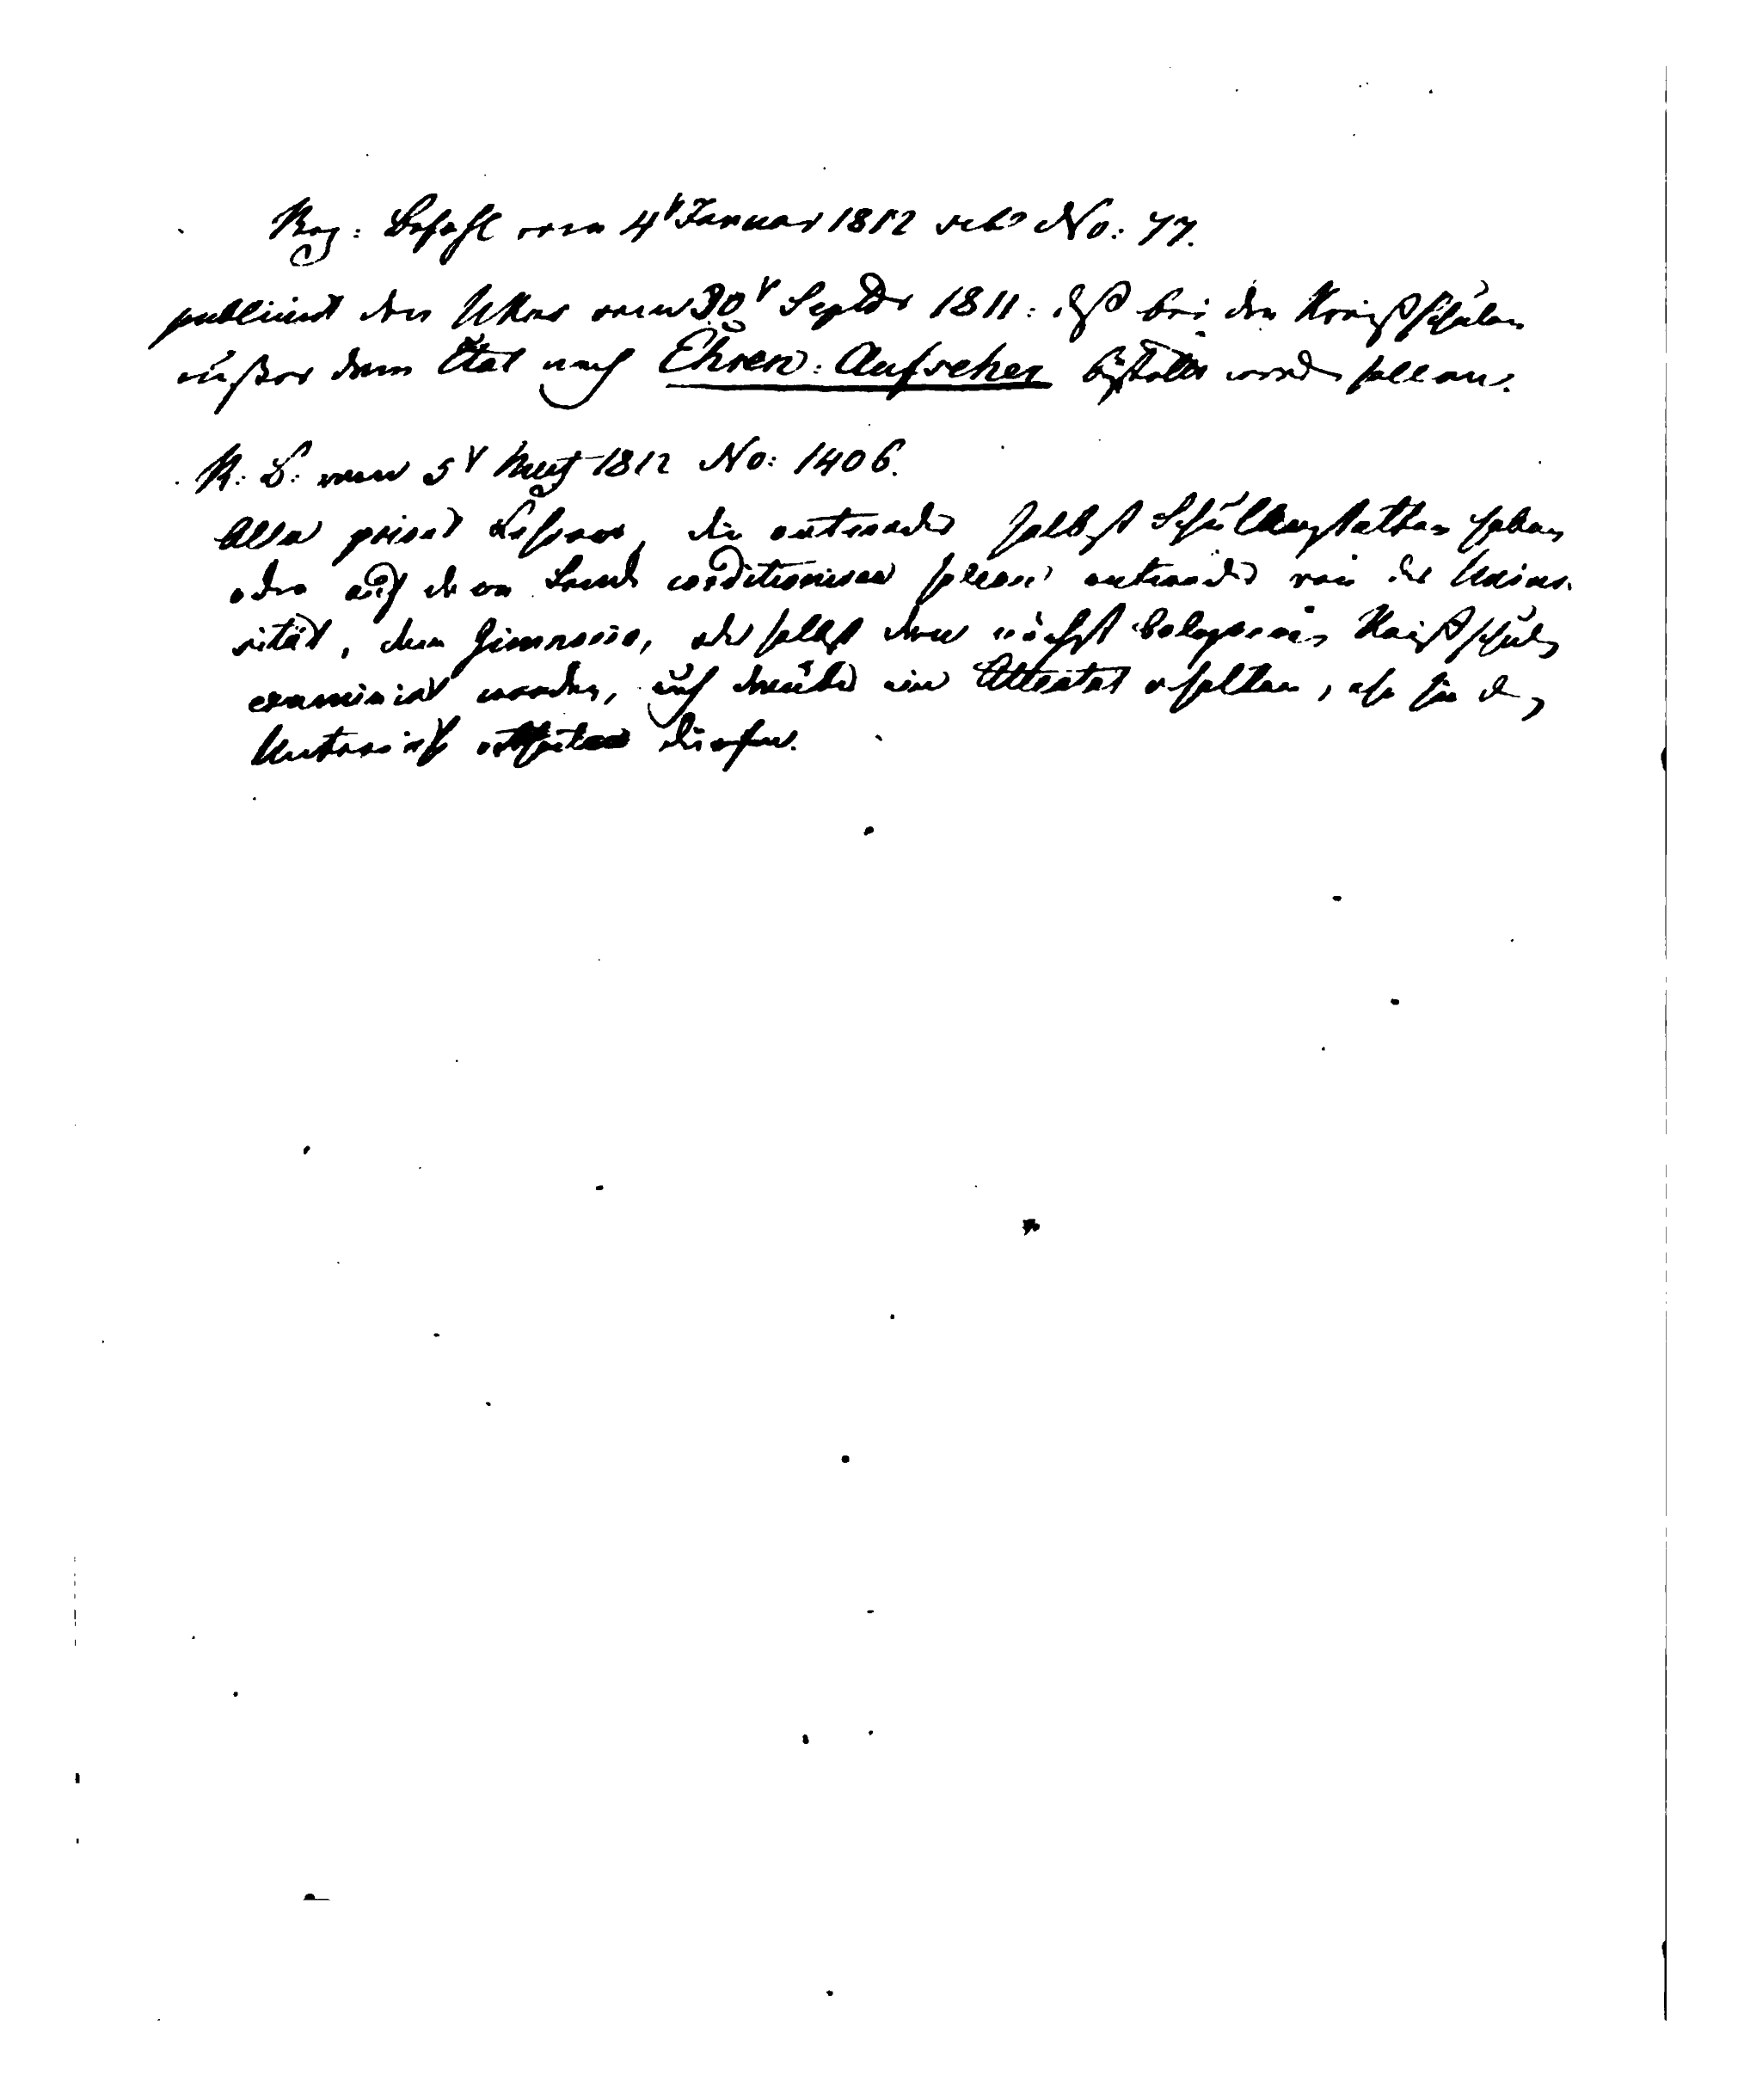 Reg: Befehl vom 4t Januar 1812 sub No: 77.
publicirt den Ukas vom 30t Septbr 1811: daß bei den Kreißschulen
außer dem Etat noch Ehren: Aufseher bestellt werden sollen.
R: B: vom 5t 1812 No: 1406.
Alle privat Lehrer, die entweder selbst Schulanstalten haben
oder auf dem Lande conditioniren sollen entweder von der Univer-
sität, dem Gimnasio, oder selbst den nächst belegenen Kreißschulen
examinirt werden, auch darüber ein Attestat erhalten, ehe sie den
Unterricht ertheilen dürfen.